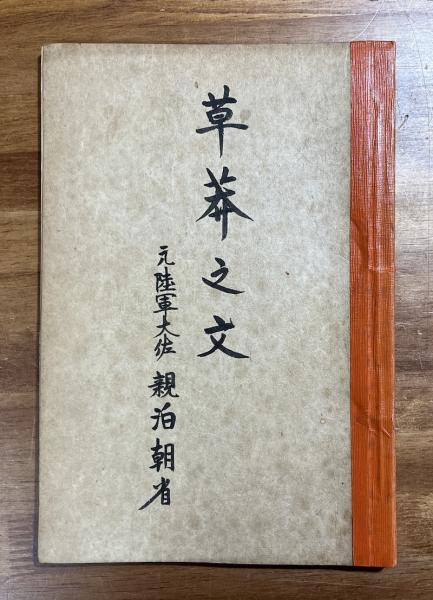 草莽之文
元陸軍大佐 親泊朝省